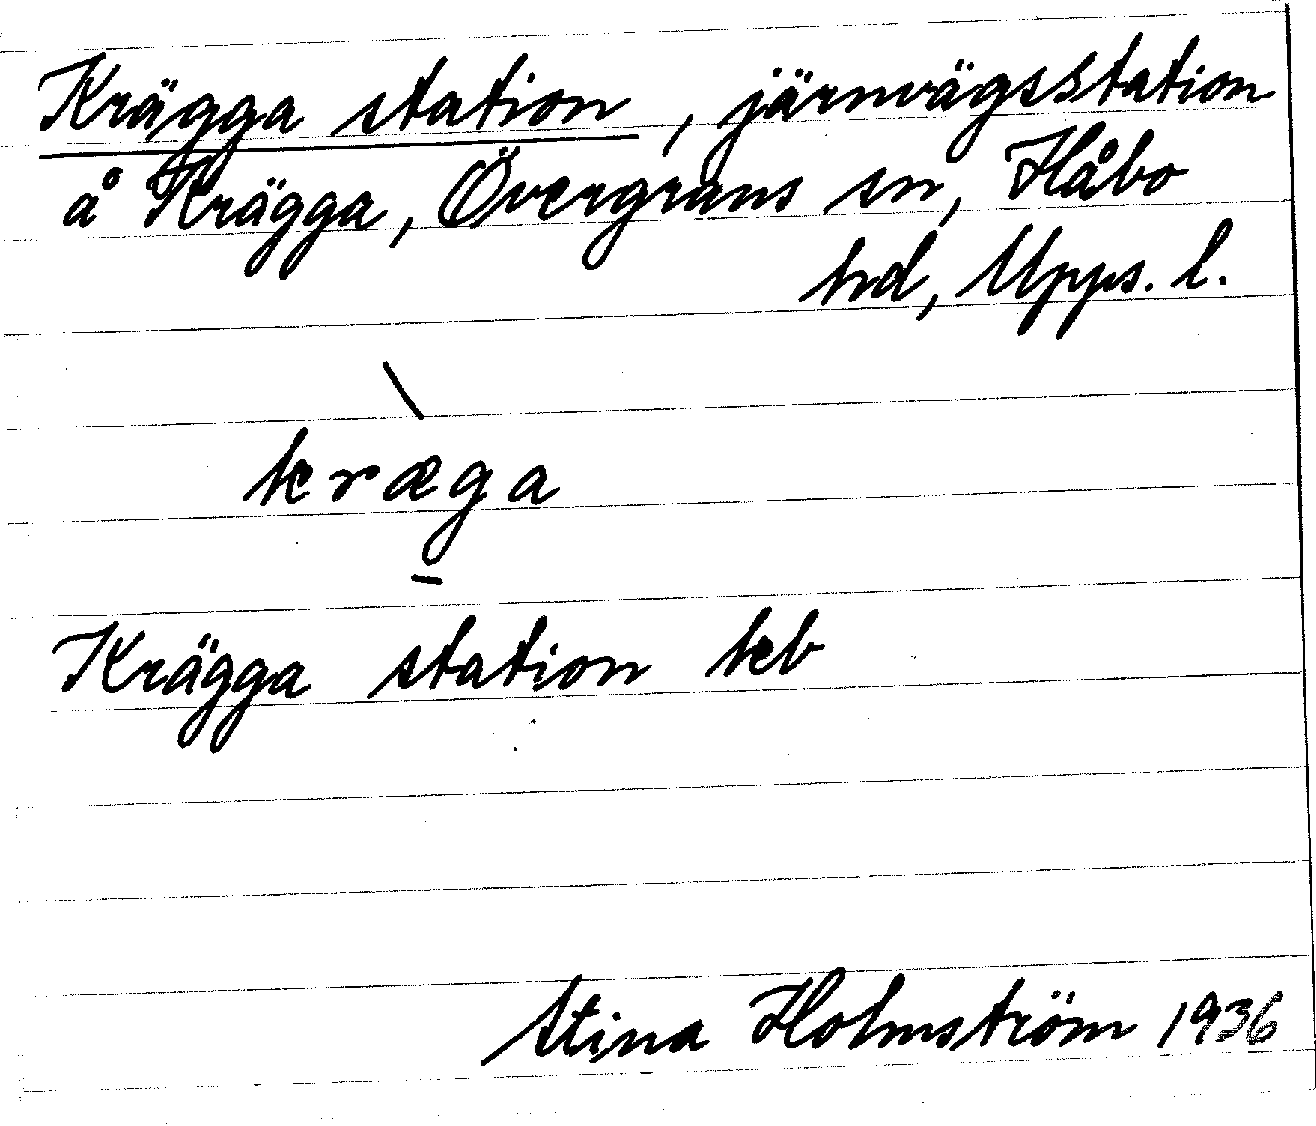 Krägga station, järnvägsstation
å Krägga, Övergrans sn, Håbo
hd, Upps. l.
kræ̀g̱a
Krägga station kb
Stina Holmström 1936